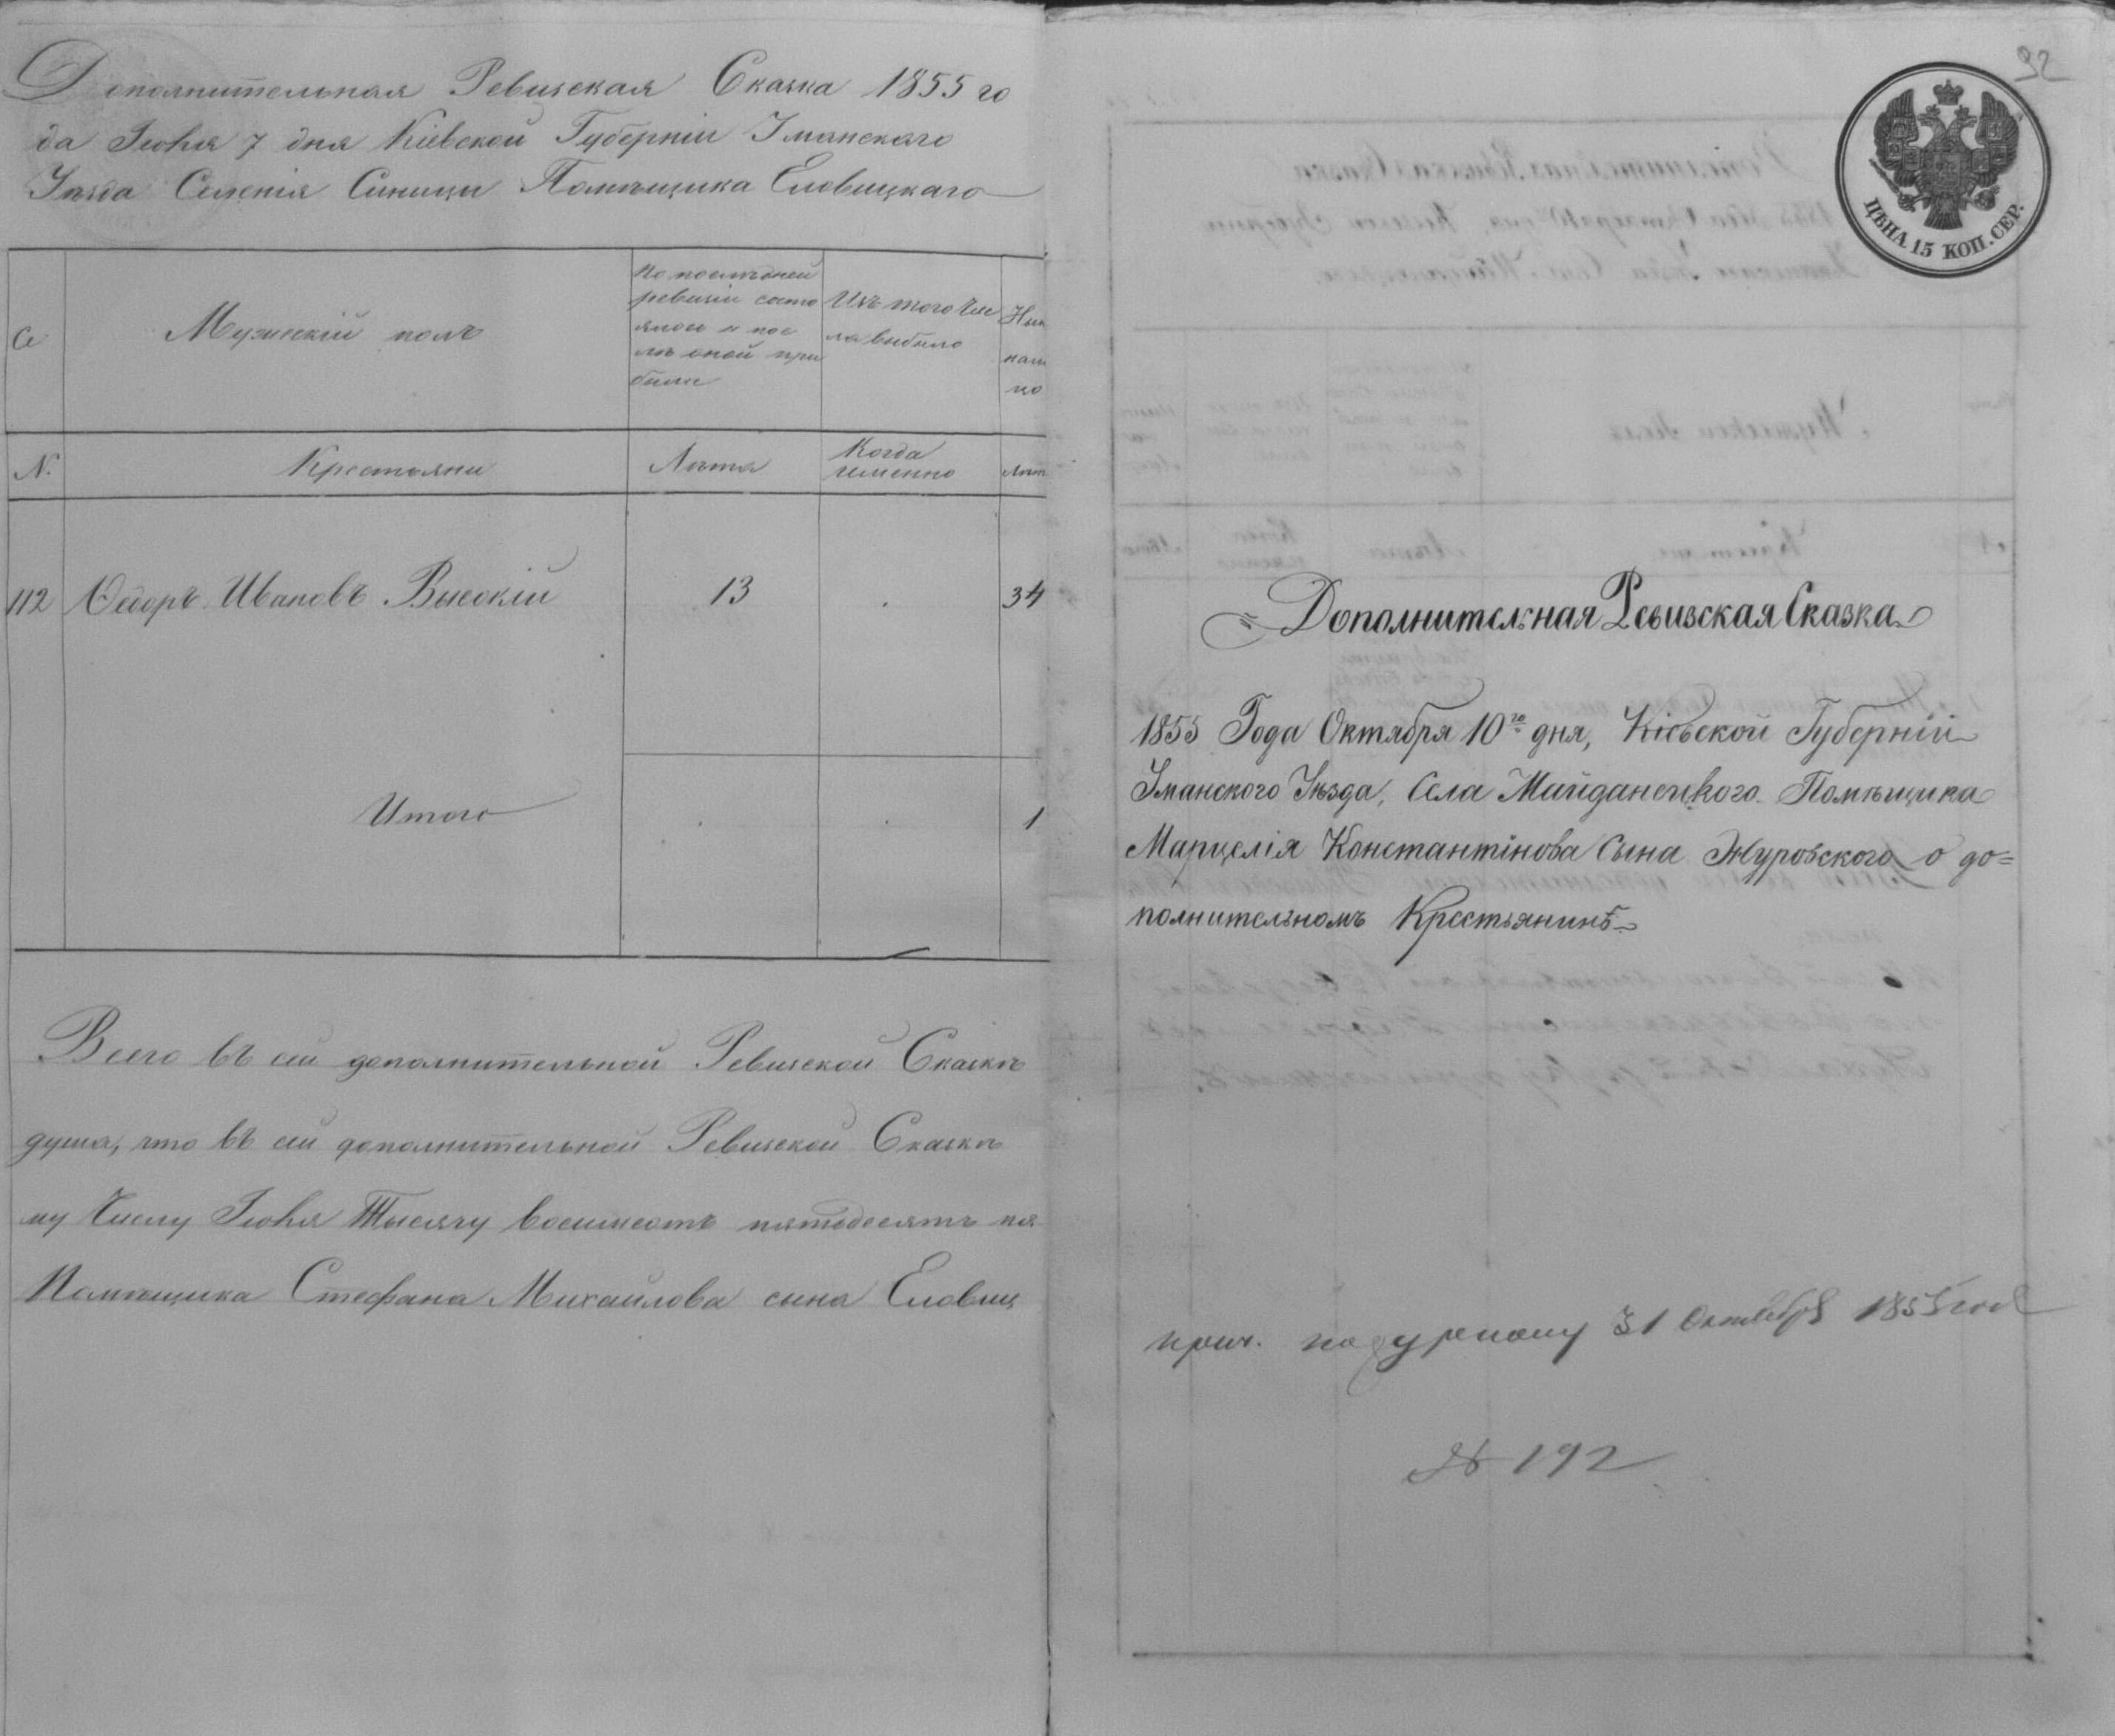 Дополнительная Ревизская Сказка 1855 го
да Іюня 7 дня Кіевской Губерніи Уманскаго
Уѣзда Селенія Синици Помѣщика Еловицкаго
Се
Мужескій полъ
По послѣдней
ревизіи состо
яло и пос
лѣ оной при
было
Изъ того чис
ла выбыло
Нын
нали
цо
N.
Крестьяни
Лѣта
Когда
именно
Лѣт
112 Ѳедоръ Ивановъ Высокій 13 . 34
Итого . . 1
Всего въ сей дополнительной Ревизской Сказкѣ
душа, что въ сей дополнительной Ревизской Сказкѣ
му Числу Іюня Тысячу восимсотъ пятодесятъ пя
Помѣщика Стефана Михаилова сына Еловиц
92
ЦѢНА 15 КОП. СЕР.
Дополнительная Ревизская Сказка
1855 Года Октября 10го дня, Кіевской Губерніи
Уманского Уѣзда, Села Майданецкого Помѣщика
Марцелія Константінова Сына Журовского о до=
полнительномъ Крестьянинѣ
31 Октября 1855 года
№ 192